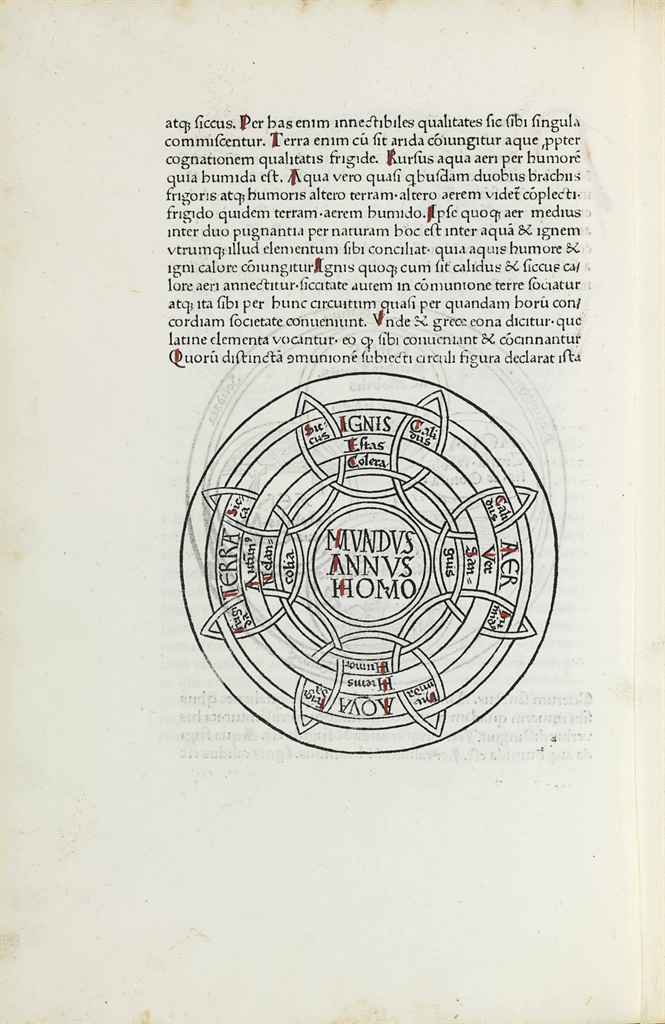 atq; siccus. Per has enim innectibiles qualitates sic sibi singula
commiscentur. Terra enim cũ sit arida cõiungitur aque ꝓpter
cognationem qualitatis frigide. Rursus aqua aeri per humorẽ
quia humida est. Aqua vero quasi qbusdam duobus brachiis
frigoris atq; humoris altero terram·altero aerem videt̃ cõplecti·
frigido quidem terram·aerem humido. Ipse quoq; aer medius
inter duo pugnantia per naturam hoc est inter aquã & ignem
vtrumq; illud elementum sibi conciliat· quia aquis humore &
igni calore cõiungitur Ignis quoq; cum sit calidus & siccus ca/
lore aeri annectitur·siccitate autem in cõmunione terre sociatur
atq; ita sibi per hunc circuitum quasi per quandam horũ con/
cordiam societate conueniunt. Vnde & grece eona dicitur· que
latine elementa vocantur· eo ꝙ sibi conueniant & cõcinnantur
Quorũ distinctã ꝯmunionẽ subiecti circuli figura declarat ista
Sic
cus
IGNIS
Estas
Colera
Cali
dus
Sic
ca
TERRA
Autũnꝰ
Melan=
colia
Frigi
da
MVNDVS
ANNVS
HOMO
Cali
dus
AER
Ver
San=
guis
Hu
mid
Humor
Hiems
AQVA
Frigi
da
Hu
mida